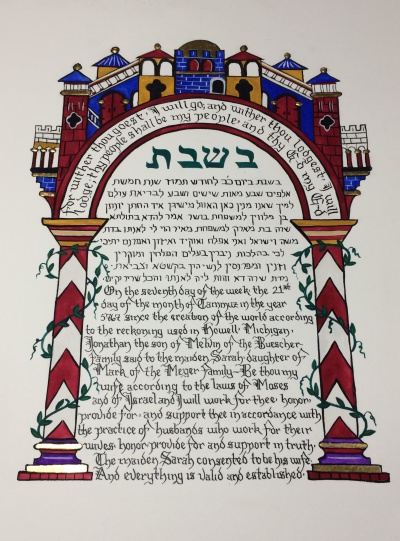 for wither thou goest, I will go; and wither thou lodgest, I will
lodge, thy people shall be my people, and thy G-d my G-d
בשבת
בשבת ביום לחודש תמוז שנת חמשת
אלפים שבע מאות ששים ושבע לבריאת עולם
למנין שאנו מנין כאן האוול מישיגן איך החתן יונתן
בן מלווין למשפחת בושר אמר להדא בתולתא
שרה בת מארק למשפחת מאיר הוי לי לאנתו כדת
משה וישראל ואני אפלח ואוקיר ואיזון ואפרנס יתיכי
ומוקרין
וזנין ומפרנסין לנשיהון בקשטא
מרת שרה דא והות ליה לאנתו והכל שריר וקים
On the seventh day of the week the 21st
day of the month of Tammuz in the year
since the creation of the world according
to the reckoning used in Howell, Michigan,
Jonathan the son of Melvin of the Buescher
family said to the maiden Sarah daughter of
Mark of the Meyer family - Be thou my
wife according to the laws of Moses
and of Israel and I will work for thee, honor,
provide for, and support thee in accordance with
the practice of husbands who work for their
wives, honor, provide for and support in truth.
The maiden Sarah consented to be his wife.
And everything is valid and established.